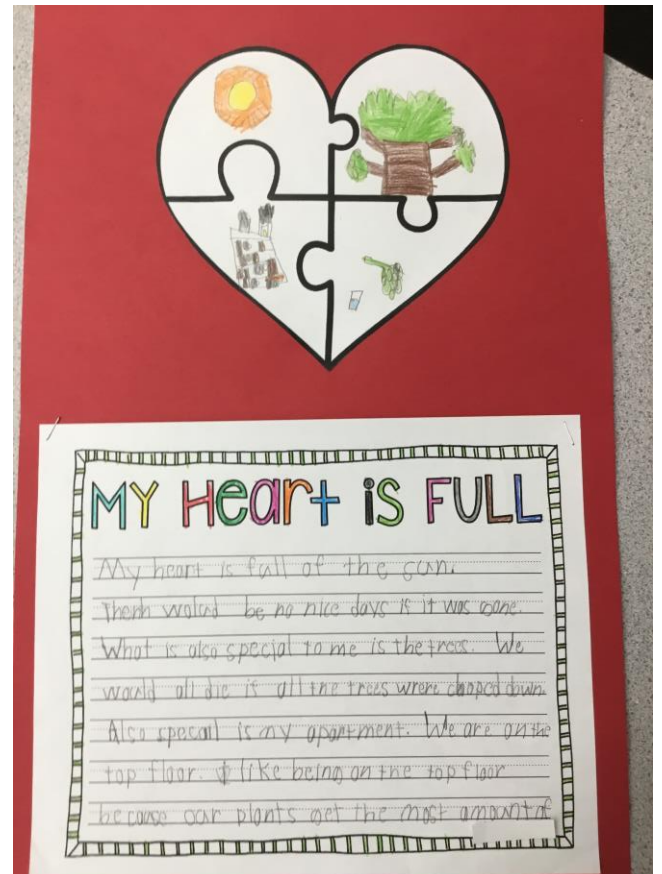 MY HeArt iS FULL
My heart is full of the sun.
Thenh wolud be no nice days if it was gone.
What is also special to me is the trees. We
would all die if all the trees wrere choped down.
Also specail is my apartment. We are on the
top floor. I like being on the top floor
because our plants get the most amount of